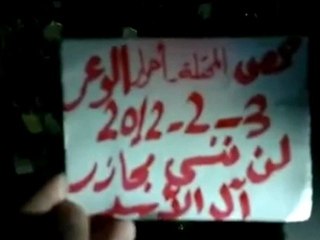 حمص المحتلة - أحرار الوعر
2012-2-3
لن ننسى مجازر
آل الأسد